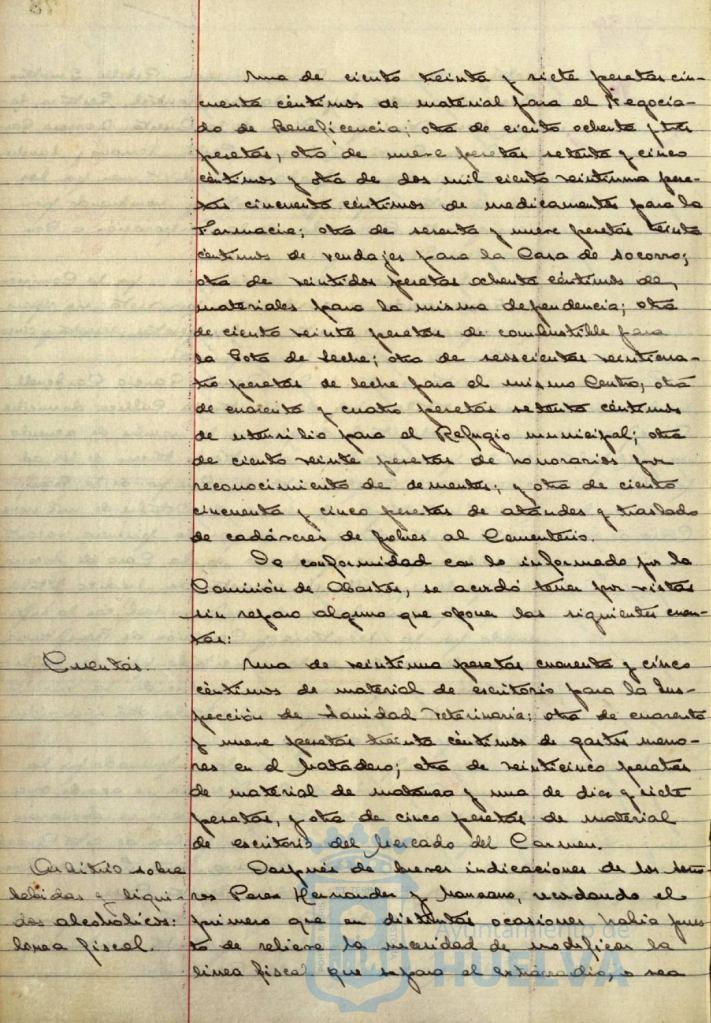 Una de ciento treinta y siete pesetas cin-
cuenta céntimos de material para el Negocia-
do de Beneficencia; otra de ciento ochenta y tres
pesetas, otra de nueve pesetas setenta y cinco
céntimos y otra de dos mil ciento veintiuna pese-
tas cincuenta céntimos de medicamentos para la
Farmacia; otra de sesenta y nueve pesetas treinta
céntimos de vendajes para la Casa de Socorro;
otra de veintidos pesetas ochenta céntimos de
materiales para la misma dependencia; otra
de ciento veinte pesetas de combustible para
la Gota de leche; otra de seiscientas veinticua-
tro pesetas de leche para el mismo Centro; otra
de cuarenta y cuatro pesetas setenta céntimos
de utensilio para el Refugio municipal; otra
de ciento veinte pesetas de honorarios por
reconocimiento de dementes; y otra de ciento
cincuenta y cinco pesetas de ataúdes y traslado
de cadáveres de pobres al Cementerio.
De conformidad con lo informado por la
Comisión de Abastos, se acordó tener por vistas
sin reparo alguno que oponer las siguientes cuen-
tas:
Cuentas.
Una de veintiuna pesetas cuarenta y cinco
céntimos de material de escritorio para la Ins-
pección de Sanidad Veterinaria; otra de cuarenta
y nueve pesetas treinta céntimos de gastos meno-
res en el Matadero; otra de veinticinco pesetas
de material de matanza y una de diez y siete
pesetas, y otra de cinco pesetas de material
de escritorio del Mercado del Carmen.
Arbitrio sobre
bebidas y líqui-
dos alcohólicos:
línea fiscal.
Después de breves indicaciones de los seño-
res Perez Hernandez y Manzano, recordando el
primero que en distintas ocasiones había pues-
to de relieve la necesidad de modificar la
línea fiscal que separa el extrarradio, o sea
Ayuntamiento de
HUELVA